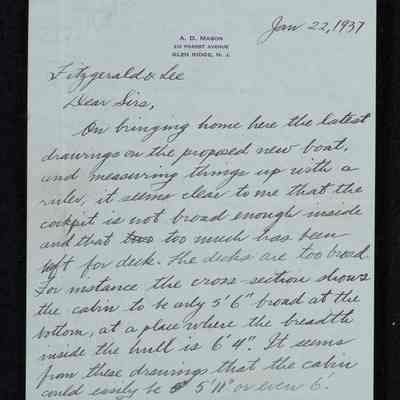 Jan 22, 1937
A. D. Mason
Forest Avenue
Glen Ridge, N. J.
Fitzgerald & Lee
Dear Sirs,
On bringing home here the latest
drawings on the proposed new boat,
and measuring things up with a
ruler, it seems clear to me that the
cockpit is not broad enough inside
and that too too much has been
left for deck. The decks are too broad.
For instance the cross-section shows
the cabin to be only 5'6" broad at the
bottom, at a place where the breadth
inside the hull is 6'4". It seems
from these drawings that the cabin
could easily be 5'11" or even 6'.